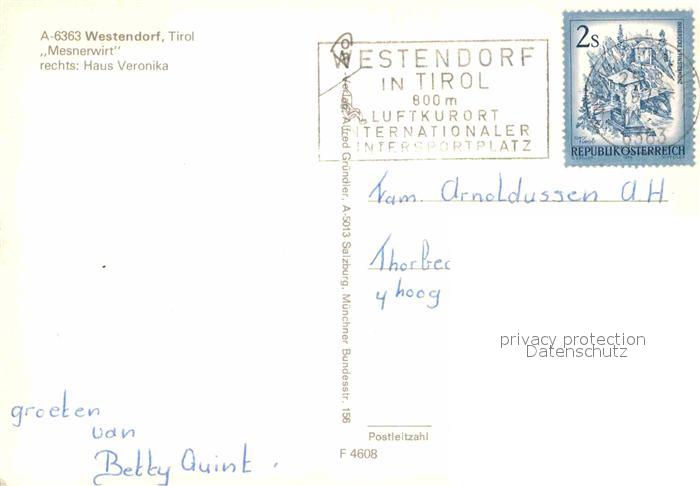 A-6363 Westendorf, Tirol
„Mesnerwirt"
rechts: Haus Veronika
WESTENDORF
IN TIROL
800 m
LUFTKURORT
INTERNATIONALER
WINTERSPORTPLATZ
2s
REPUBLIK ÖSTERREICH
6363
-Verlag Alfred Gründler, A-5013 Salzburg, Münchner Bundesstr. 156
Fam. Arnoldussen A.H
Thorbec
y hoog
privacy protection
Datenschutz
groeten
van
Betty Quint.
Postleitzahl
F 4608